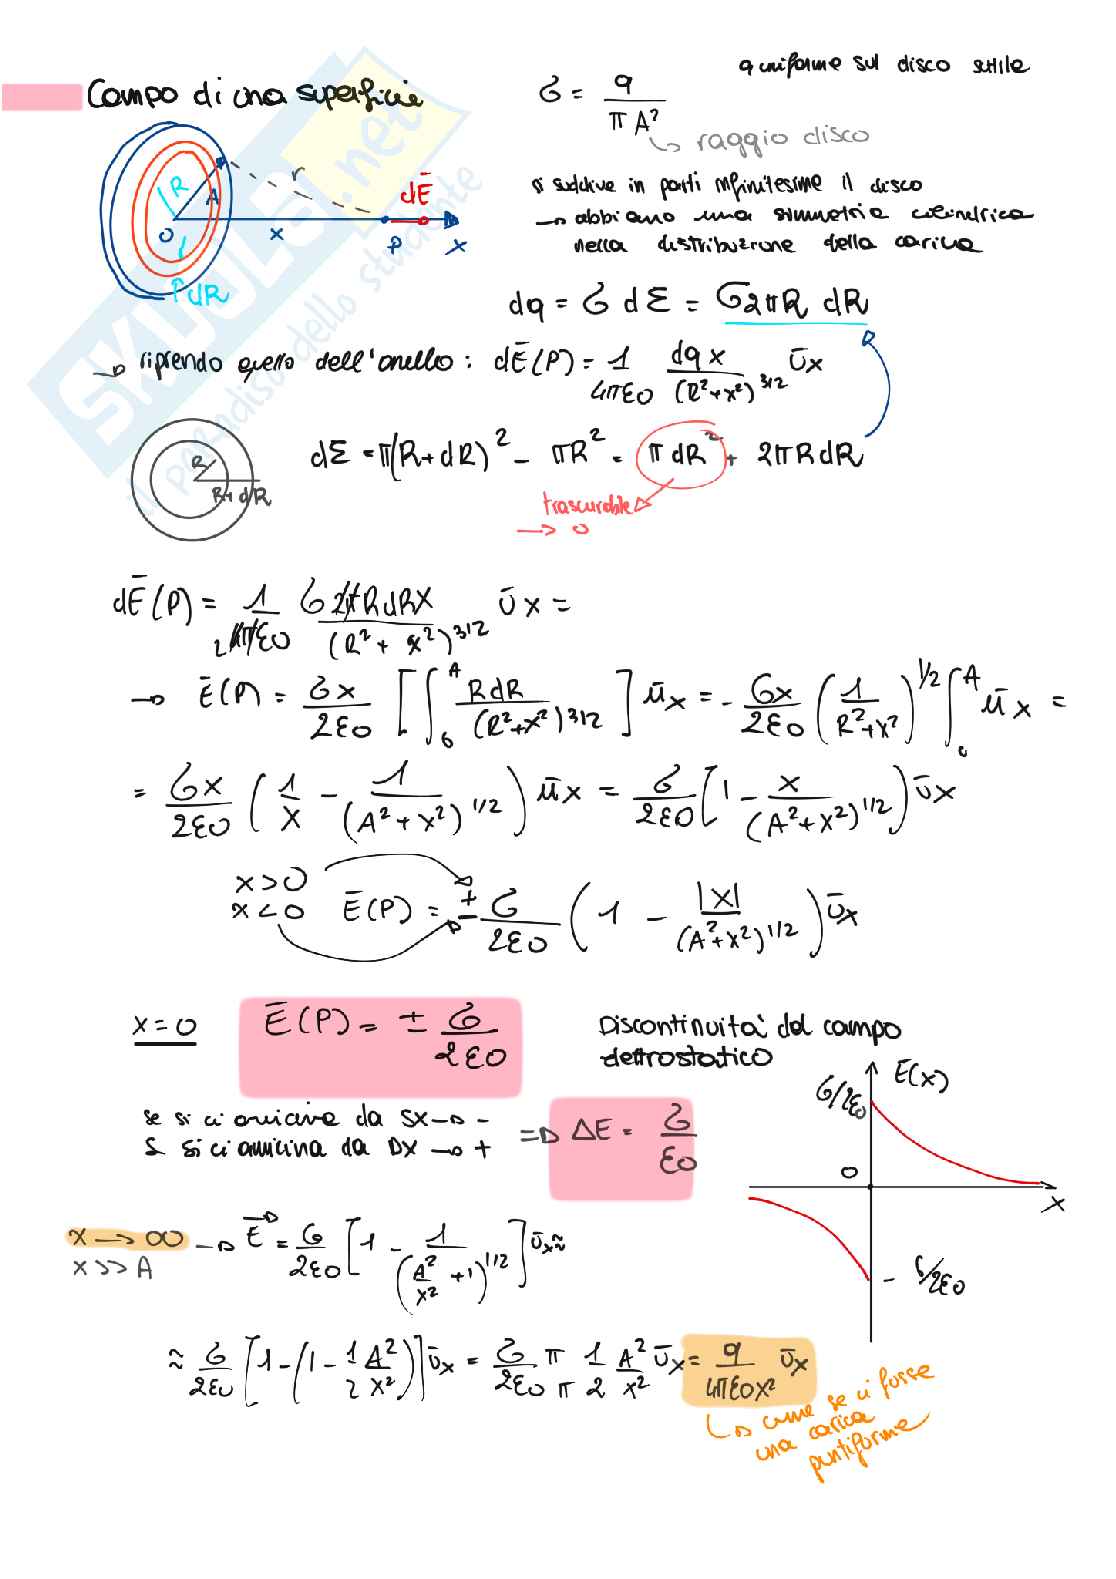 Campo di una superficie
q uniforme sul disco sottile
σ = q / π A²
↳ raggio disco
si suddive in parti infinitesime il disco
→ abbiamo una simmetria cilindrica
nella distribuzione della carica
R A r dĒ
O x P x
dR
dq = σ dΣ = σ2πR dR
→ riprendo quello dell'anello: dĒ(P) = 1/4πε0 dq x/(R²+x²)^3/2 ūx
R
R+dR
dΣ = π(R+dR)² - πR² = π dR² + 2πRdR
trascurabile
→ 0
dĒ(P) = 1/4πε0 σ2πRdRx/(R²+x²)^3/2 ūx =
→ Ē(P) = σx/2ε0 [∫₀ᴬ RdR/(R²+x²)^3/2] ūx = - σx/2ε0 (1/R²+x²)^1/2 ∫₀ᴬ ūx =
= σx/2ε0 (1/x - 1/(A²+x²)^1/2) ūx = σ/2ε0 [1 - x/(A²+x²)^1/2] ūx
x>0
x<0 Ē(P) = ± σ/2ε0 (1 - |x|/(A²+x²)^1/2) ūx
x=0 Ē(P) = ± σ/2ε0
Discontinuità del campo
elettrostatico
se si ci avvicina da sx → -
se si ci avvicina da Dx → + ⇒ ΔE = σ/ε0
σ/2ε0 E(x)
0
x
- σ/2ε0
x → ∞ → E⃗ = σ/2ε0 [1 - 1/(A²/x² + 1)^1/2] ūx ≈
x >> A
≈ σ/2ε0 [1-(1 - 1/2 A²/x²)] ūx = σ/2ε0 π/π 1/2 A²/x² ūx = q/4πε0x² ūx
↳ come se ci fosse
una carica
puntiforme
SKUOLA.net
il paradiso dello studente